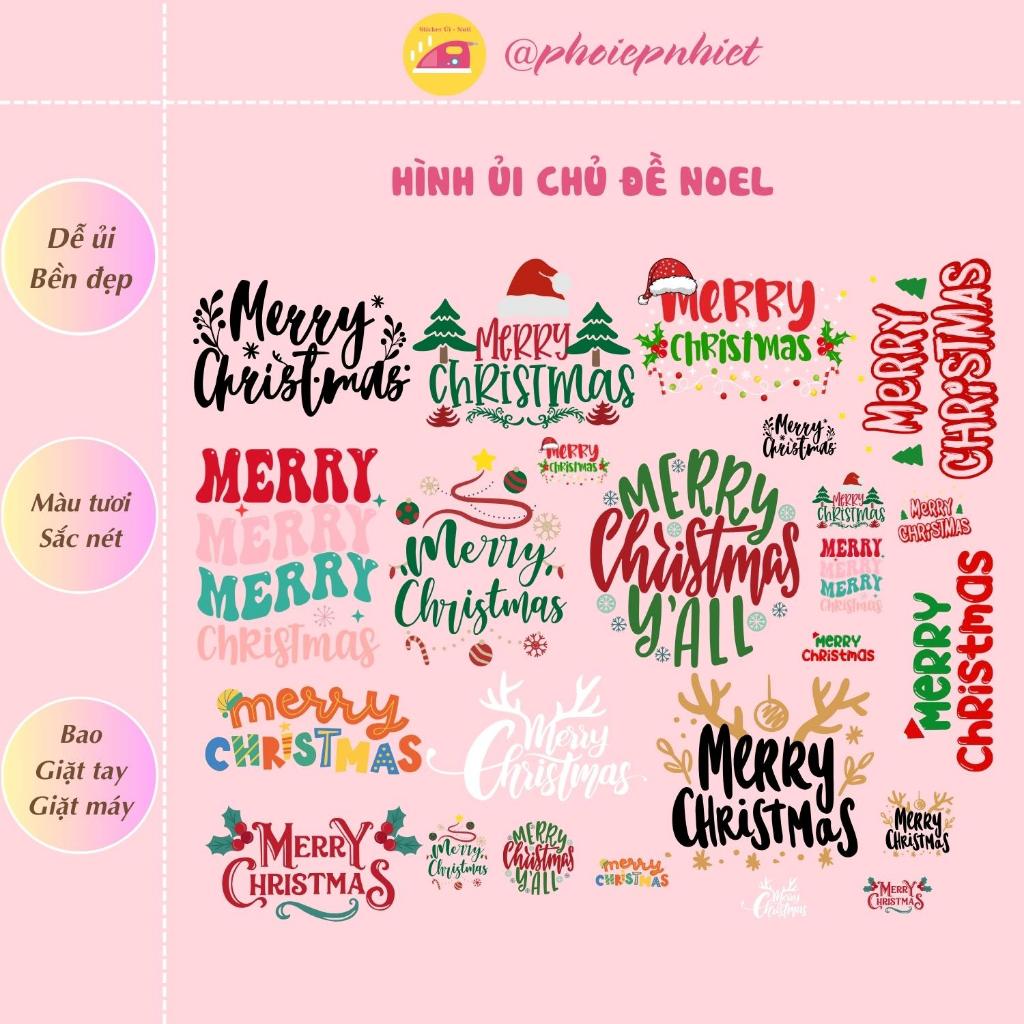 Sticker Ủi - Noel
@phoiepnhiet
HÌNH ỦI CHỦ ĐỀ NOEL
Dễ ủi
Bền đẹp
Màu tươi
Sắc nét
Bao
Giặt tay
Giặt máy
Merry
Christmas
MERRY
CHRISTMAS
MERRY
christmas
MERRY
CHRISTMAS
Merry
Christmas
MERRY
MERRY
MERRY
CHRISTMAS
Merry
Christmas
MERRY
christmas
MERRY
Christmas
Y'ALL
MERRY
CHRISTMAS
MERRY
CHRISTMAS
MERRY
MERRY
MERRY
CHRISTMAS
MERRY
Christmas
MERRY
Christmas
merry
CHRISTMAS
Merry
Christmas
MERRY
CHRISTMAS
MERRY
CHRISTMAS
MERRY
CHRISTMAS
Merry
Christmas
MERRY
Christmas
Y'ALL
merry
CHRISTMAS
Merry
Christmas
MERRY
CHRISTMAS